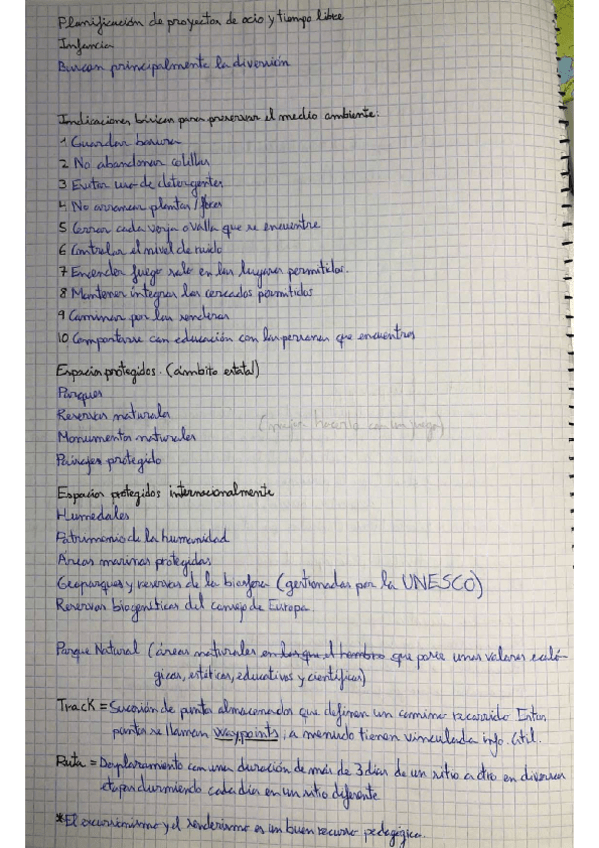 Planificación de proyectos de ocio y tiempo libre
Infancia
Buscan principalmente la diversión
Indicaciones básicas para preservar el medio ambiente:
1 Guardar basura
2 No abandonar colillas
3 Evitar uso de detergentes
4 No arrancar plantas / flores
5 Cerrar cada verja o valla que se encuentre
6 Controlar el nivel de ruido
7 Encender fuego solo en los lugares permitidos.
8 Mantener íntegros los cercados permitidos
9 Caminar por los senderos
10 Comportarse con educación con las personas que encuentres
Espacios protegidos. (ámbito estatal)
Parques
Reservas naturales
(mejor hacerlo con un juego)
Monumentos naturales
Paisajes protegido
Espacios protegidos internacionalmente
Humedales
Patrimonio de la humanidad
Áreas marinas protegidas
Geoparques y reservas de la biosfera (gestionadas por la UNESCO)
Reservas biogenéticas del consejo de Europa.
Parque Natural (áreas naturales en las que el hombre que posee unos valores ecoló-
gicos, estéticos, educativos y científicos)
Track = Sucesión de puntos almacenados que definen un camino recorrido. Estos
puntos se llaman waypoints, a menudo tienen vinculada info. útil.
Ruta = Desplazamiento con una duración de más de 3 días de un sitio a otro en diversas
etapas durmiendo cada día en un sitio diferente
*El excursionismo y el senderismo es un buen recurso pedagógico.